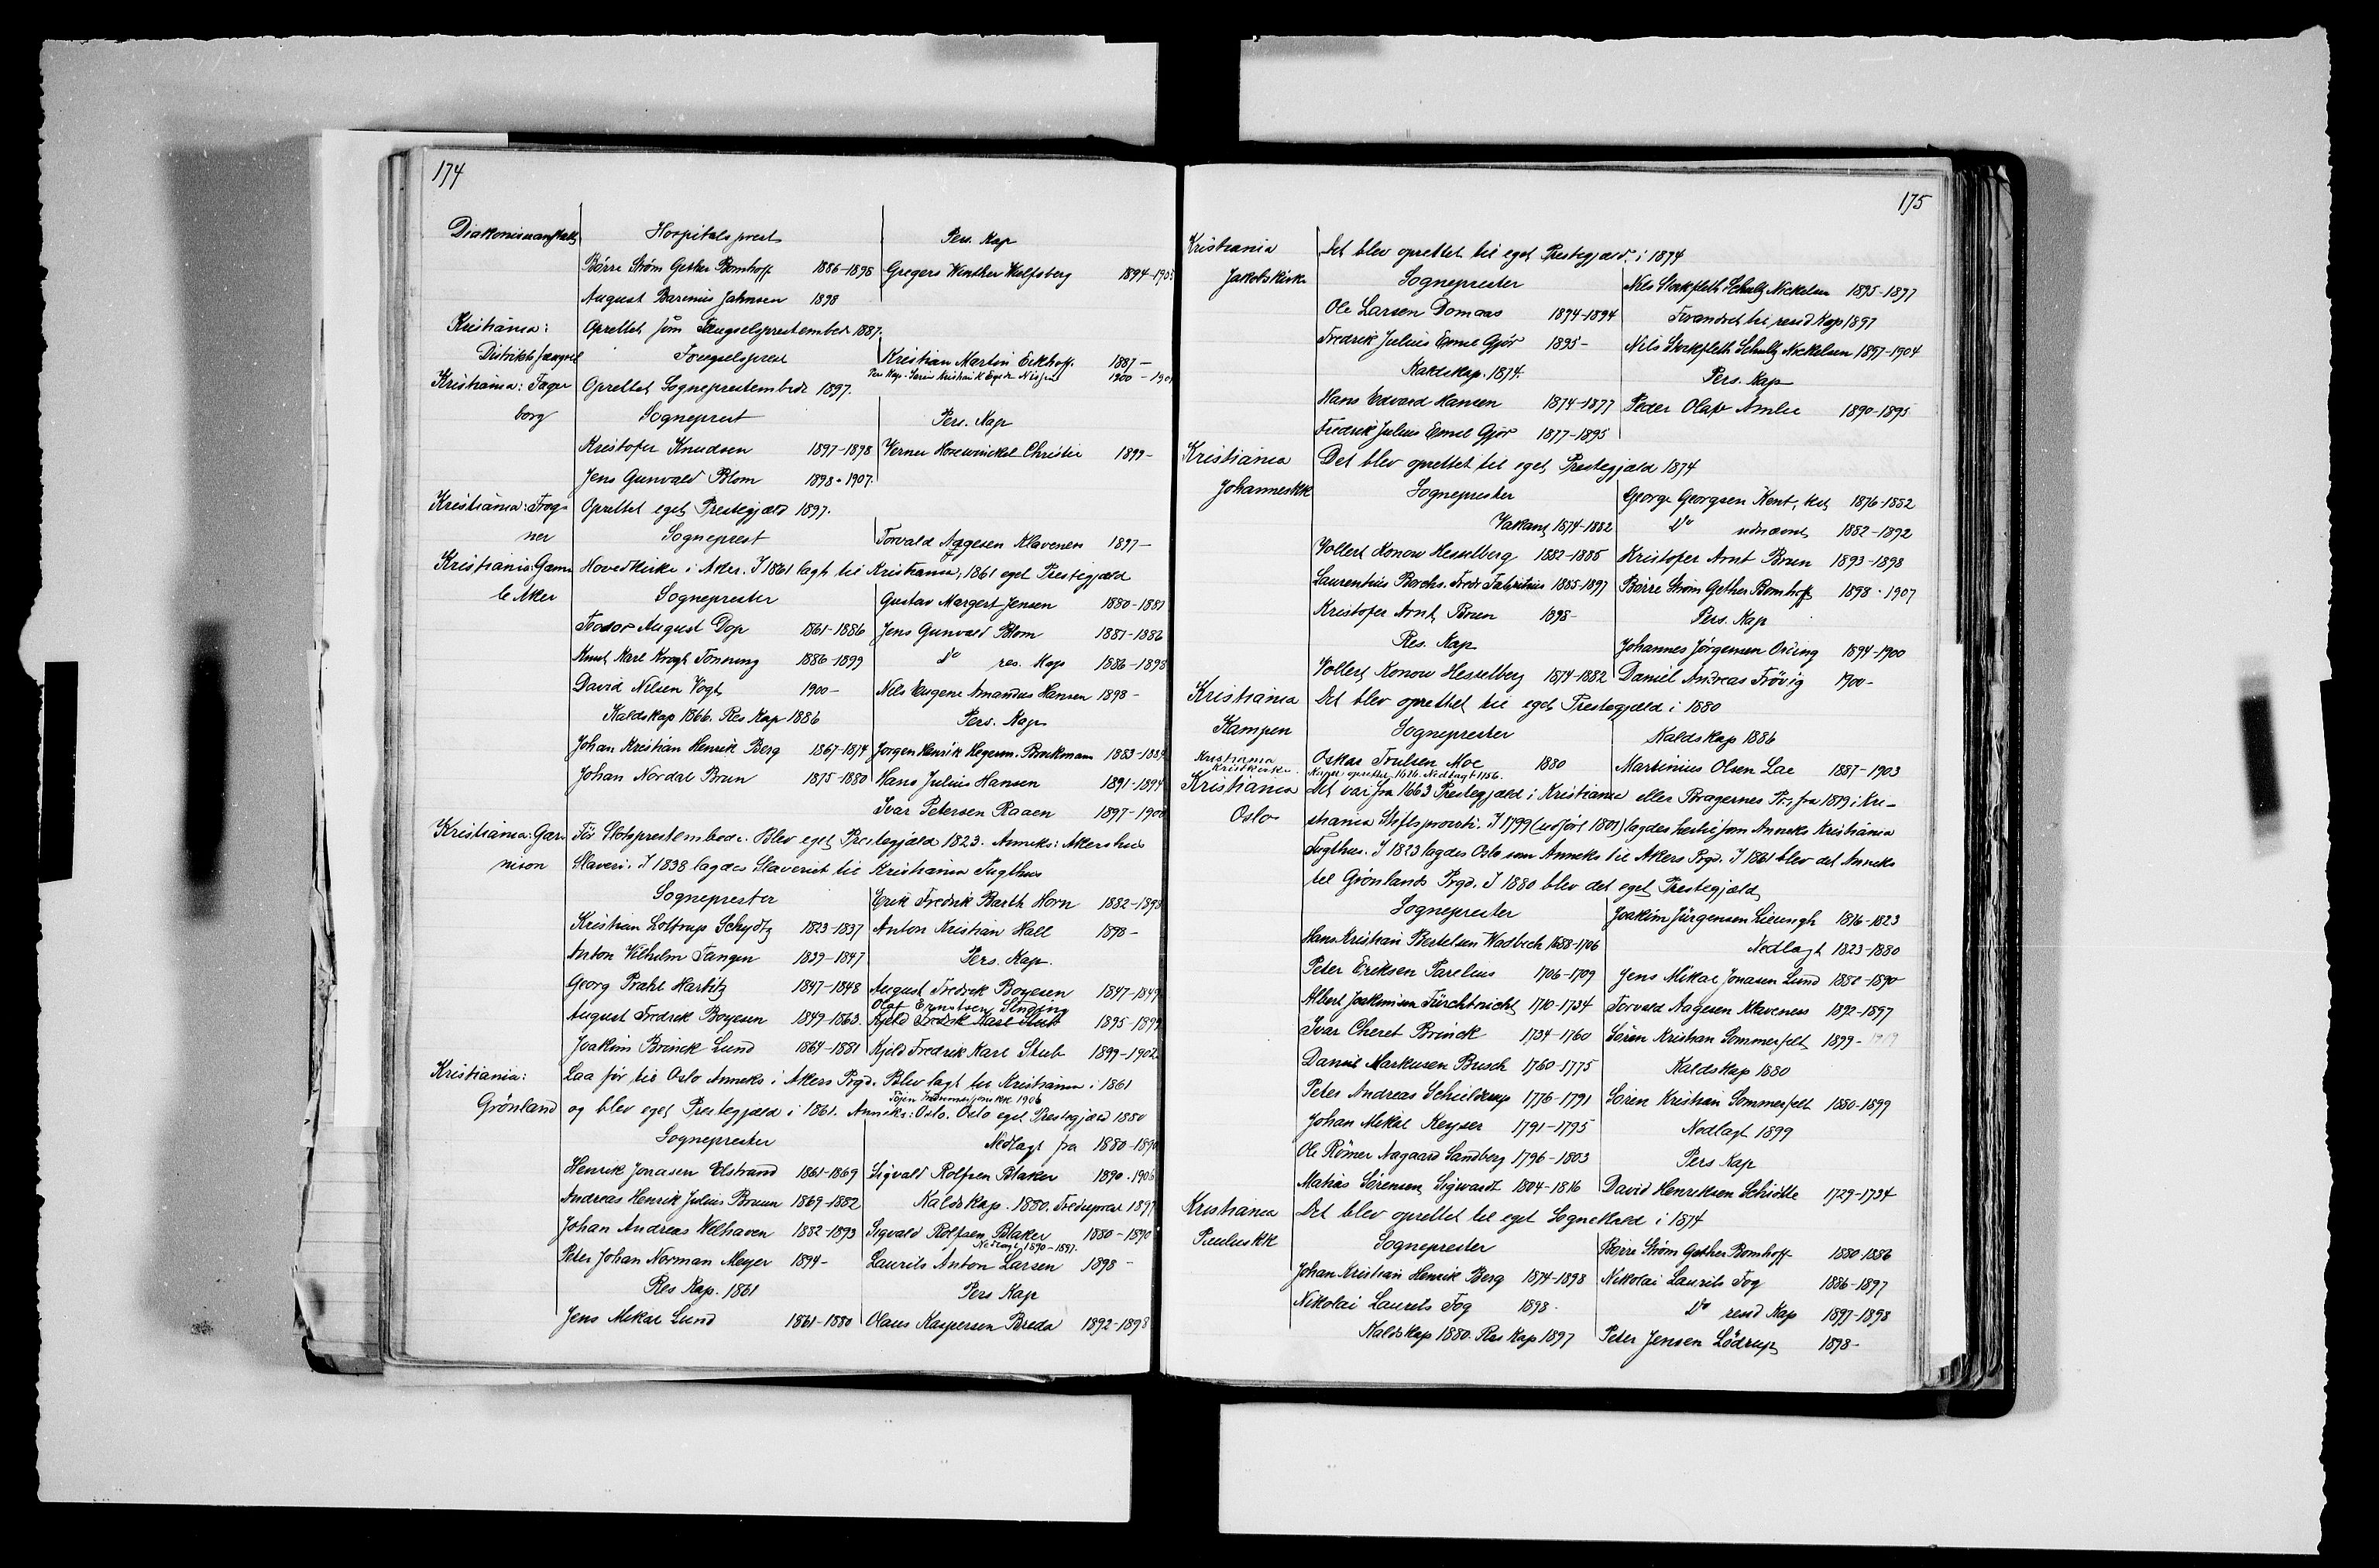 174
Diakonisseanstalten Hospitalsprest Pers. Kap
Börre Ström Gether Bomhoff 1886-1898 Gregers Winther Wulfsberg 1894-1905
August Barinius Jahnsen 1898
Kristiania: Oprettet som Fængselsprestembede 1887.
Distriktsfængsel Fængselsprest Kristian Martin Eckhoff. 1887-
Pers Kap. 1900-190
Kristiania: Fager Oprettet Sogneprestembede 1897.
borg Sogneprest Pers. Kap
Kristofer Knudsen 1897-1898 Verner Hosewinckel Christie 1899-
Jens Gunvald Blom 1898-1907.
Kristiania: Frog- Oprettet eget Prestegjæld 1897.
ner Sogneprest Torvald Aagesen Klavenes 1897-
Kristiania: Gam- Hovedkirke i Aker. I 1861 lagt til Kristiania, 1861 eget Prestegjæld
le Aker Sogneprester Gustav Margert Jensen 1880-1881
Teodor August Dop 1861-1886 Jens Gunvald Blom 1881-1886
Knut Karl Krogh Tonning 1886-1899 Do res. Kap 1886-1898
David Nilsen Vogt 1900- Nils Eugene Amandus Hansen 1898-
Kaldskap 1866. Res Kap 1886 Pers. Kap
Johan Kristian Henrik Berg 1867-1874 Jørgen Henrik Hegerm. Brochmann 1883-1889
Johan Nordal Brun 1875-1880 Hans Julius Hansen 1891-1894
Ivar Petersen Raaen 1897-1900
Kristiania: Gar- Før Slotsprestembede. Blev eget Prestegjæld 1823. Anneks: Akershus
nison Slaveri. I 1838 lagdes Slaveriet til Kristiania Tugthus
Sogneprester Erik Fredrik Barth Horn 1882-1898
Kristian Loltrup Schydtz 1823-1837 Anton Kristian Hall 1898-
Anton Vilhelm Fangen 1839-1847 Pers. Kap.
Georg Prahl Harbitz 1847-1848 August Fredrik Boyesen 1847-1849
Olaf Ernstsen Stuging
August Fredrik Boyesen 1849-1863. Kjeld Fredrik Karl Stub 1895-1899
Joakim Brinck Lund 1864-1881 Kjeld Fredrik Karl Stub 1899-1902
Kristiania: Laa før til Oslo Anneks i Akers Prgd. Blev lagt til Kristiania i 1861
Grönland og blev eget Prestegjæld i 1861. Anneks: Oslo. Oslo eget Prestegjæld 1880
Sogneprester Nedlagt fra 1880-1890
Henrik Jonasen Elstrand 1861-1869 Sigvald Rolfsen Blaker 1890-1906
Andreas Henrik Julius Bruun 1869-1882 Kaldskap. 1880. Tredieprest 1897
Johan Andreas Welhaven 1882-1893 Sigvald Rolfsen Blaker 1880-1890
Nedlagt 1890-1897.
Peter Johan Norman Meyer 1894- Laurits Anton Larsen 1898-
Res Kap. 1861 Pers Kap
Jens Mikal Lund 1861-1880 Olaus Kaspersen Breda 1892-1898
175
Kristiania Det blev oprettet til eget Prestegjæld i 1874
Jakobskirke Sogneprester Nils Stockfleth Schultz Nickelsen 1895-1897
Ole Larsen Domaas 1874-1894 Forandret til resid Kap 1897
Fredrik Julius Emil Gjør 1895- Nils Stockfleth Schultz Nickelsen 1897-1904
Kaldskap. 1874. Pers. Kap
Hans Edvard Hansen 1874-1877 Peder Olaf Amlie 1890-1895
Fredrik Julius Emil Gjør 1877-1895
Kristiania Det blev oprettet til eget Prestegjæld 1874
Johanneskk Sogneprester George Georgsen Kent, kst 1876-1882
Vakant 1874-1882 Do udnævnt 1882-1892
Vollert Konow Hesselberg 1882-1885 Kristofer Arnt Brun 1893-1898
Laurentius Borchs. Fredr Fabritius 1885-1897 Børre Strøm Gether Bomhoff 1898-1907
Kristofer Arnt Brun 1898- Pers. Kap
Res. Kap Johannes Jørgensen Ording 1894-1900
Vollert Konow Hesselberg 1874-1882 Daniel Andreas Frøvig 1900-
Kristiania Det blev oprettet til eget Prestegjæld i 1880
Kampen Sogneprester Kaldskap 1886
Kristiania Oskar Trulsen Moe 1880 Martinius Olsen Lae 1887-1903
Kristkirke. Kapel oprettet 1626. Nedlagt 1756.
Kristiania Det var fra 1663 Prestegjæld i Kristiania eller Bragernes Pr., fra 1819 i Kri-
Oslo stiania Stiftsprovsti. I 1799 (udført 1801) lagdes hertil som Anneks Kristiania
Tugthus. I 1823 lagdes Oslo som Anneks til Akers Prgd. I 1861 blev det Anneks
til Grönlands Prgd. I 1880 blev det eget Prestegjæld
Sogneprester Joakim Jürgensen Lieungh 1816-1823
Hans Kristian Bertelsen Wadbech 1688-1706 Nedlagt 1823-1880
Peter Eriksen Parelius 1706-1709 Jens Mikal Jonasen Lund 1880-1890
Albert Joakimsen Fürchtnicht 1710-1734 Torvald Aagesen Klaveness 1892-1897
Ivar Cheret Brinck 1734-1760 Søren Kristian Sommerfelt 1899-
Daniel Markusen Busch 1760-1775 Kaldskap 1880
Peter Andreas Schielderup 1776-1791 Søren Kristian Sommerfelt 1880-1899
Johan Mikal Keyser 1791-1795 Nedlagt 1899
Ole Römer Aagaard Sandberg 1796-1803 Pers Kap
Matias Sørensen Sigwardt 1804-1816 David Henriksen Schiötte 1729-1734
Kristiania Det blev oprettet til eget Sognekald i 1874
Pauluskk Sogneprester Børre Strøm Gether Bomhoff 1880-1886
Johan Kristian Henrik Berg 1874-1898 Nikolai Laurits Fog 1886-1897
Nikolai Laurits Fog 1898. Do resid Kap 1897-1898
Kaldskap 1880. Res Kap 1897 Peter Jensen Lødrup 1898-